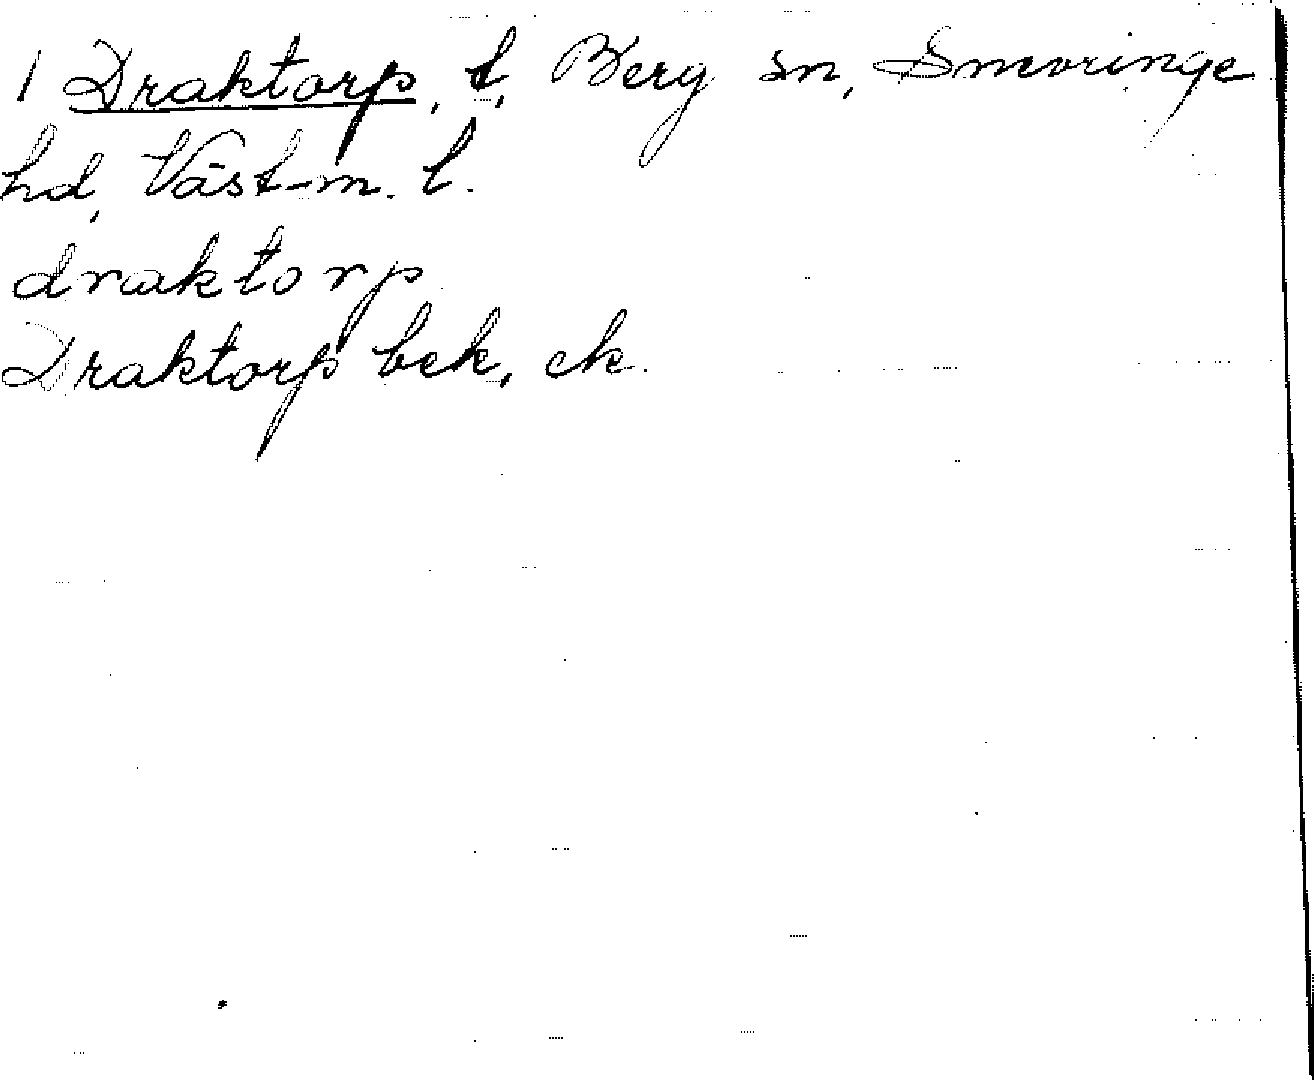 1 Draktorp, t, Berg sn, Snevringe
hd, Väst-m. l.
draktorp
Draktorp bek, ek.